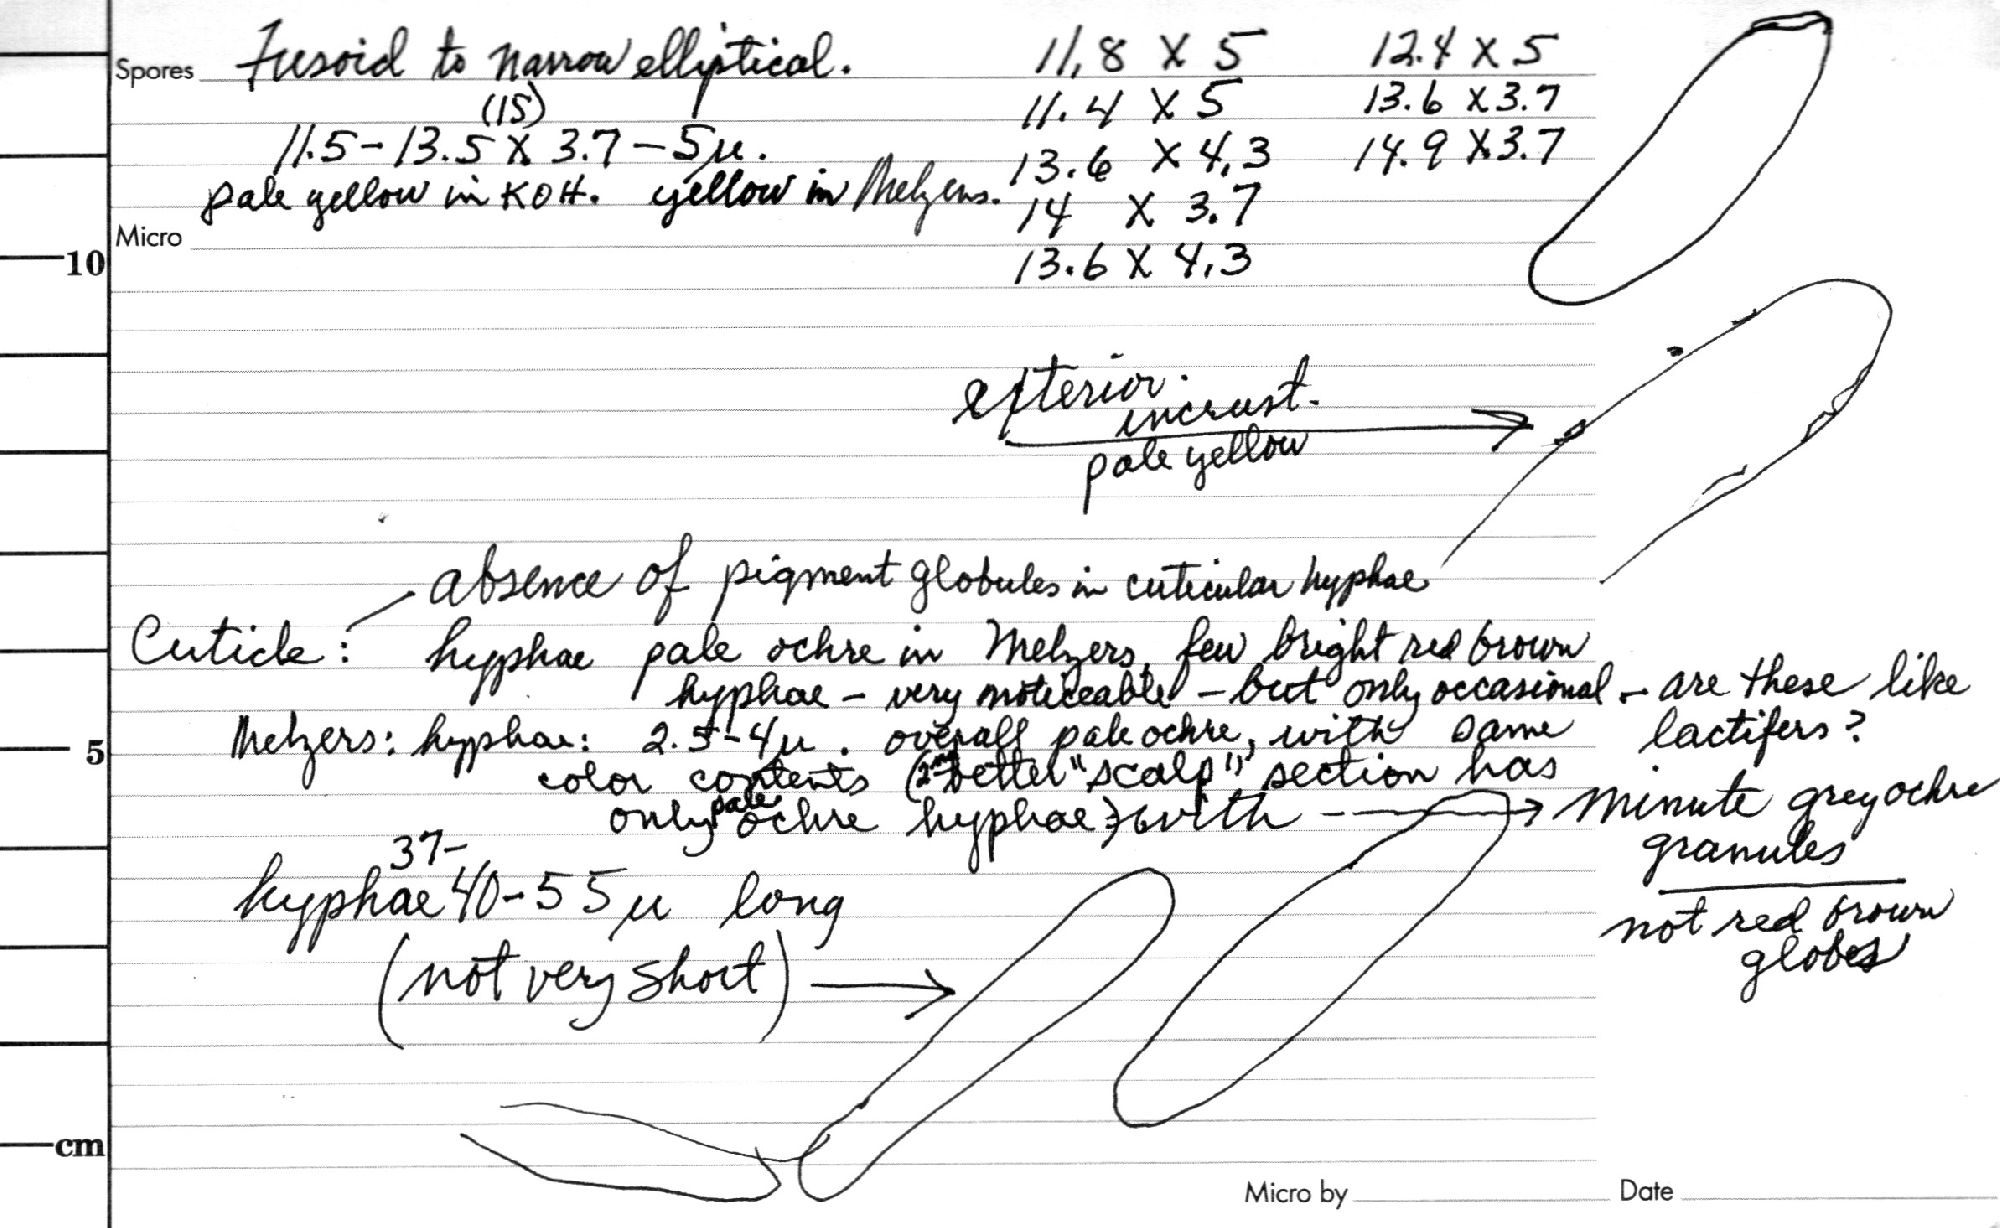 Spores Fusoid to narrow elliptical.
(15)
11.5-13.5 X 3.7-5µ.
pale yellow in KOH. yellow in Melzers.
11,8 X 5
11.4 X 5
13.6 X 4,3
14 X 3.7
13.6 X 4,3
12.4 X 5
13.6 X 3.7
14.9 X 3.7
Micro
10
exterior.
incrust.
pale yellow
absence of pigment globules in cuticular hyphae
Cuticle: hyphae pale ochre in Melzers, few bright red brown
hyphae - very noticeable - but only occasional - are these like
lactifers?
5
Melzers: hyphae: 2.5-4µ. overall pale ochre, with same
color contents (2nd better "scalp") section has
only pale ochre hyphae) with
minute grey ochre
granules
not red brown
globes
37-
hyphae 40-55µ long
(not very short)
cm
Micro by
Date